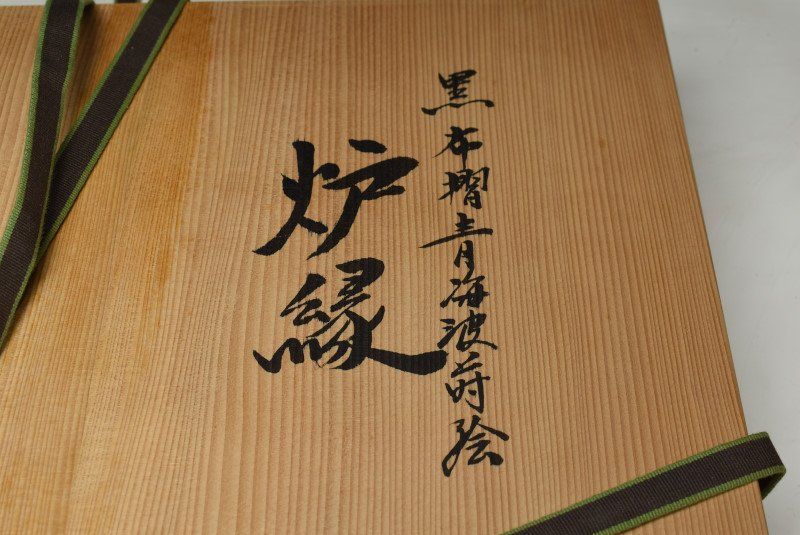 黒布摺青海波蒔絵
炉縁